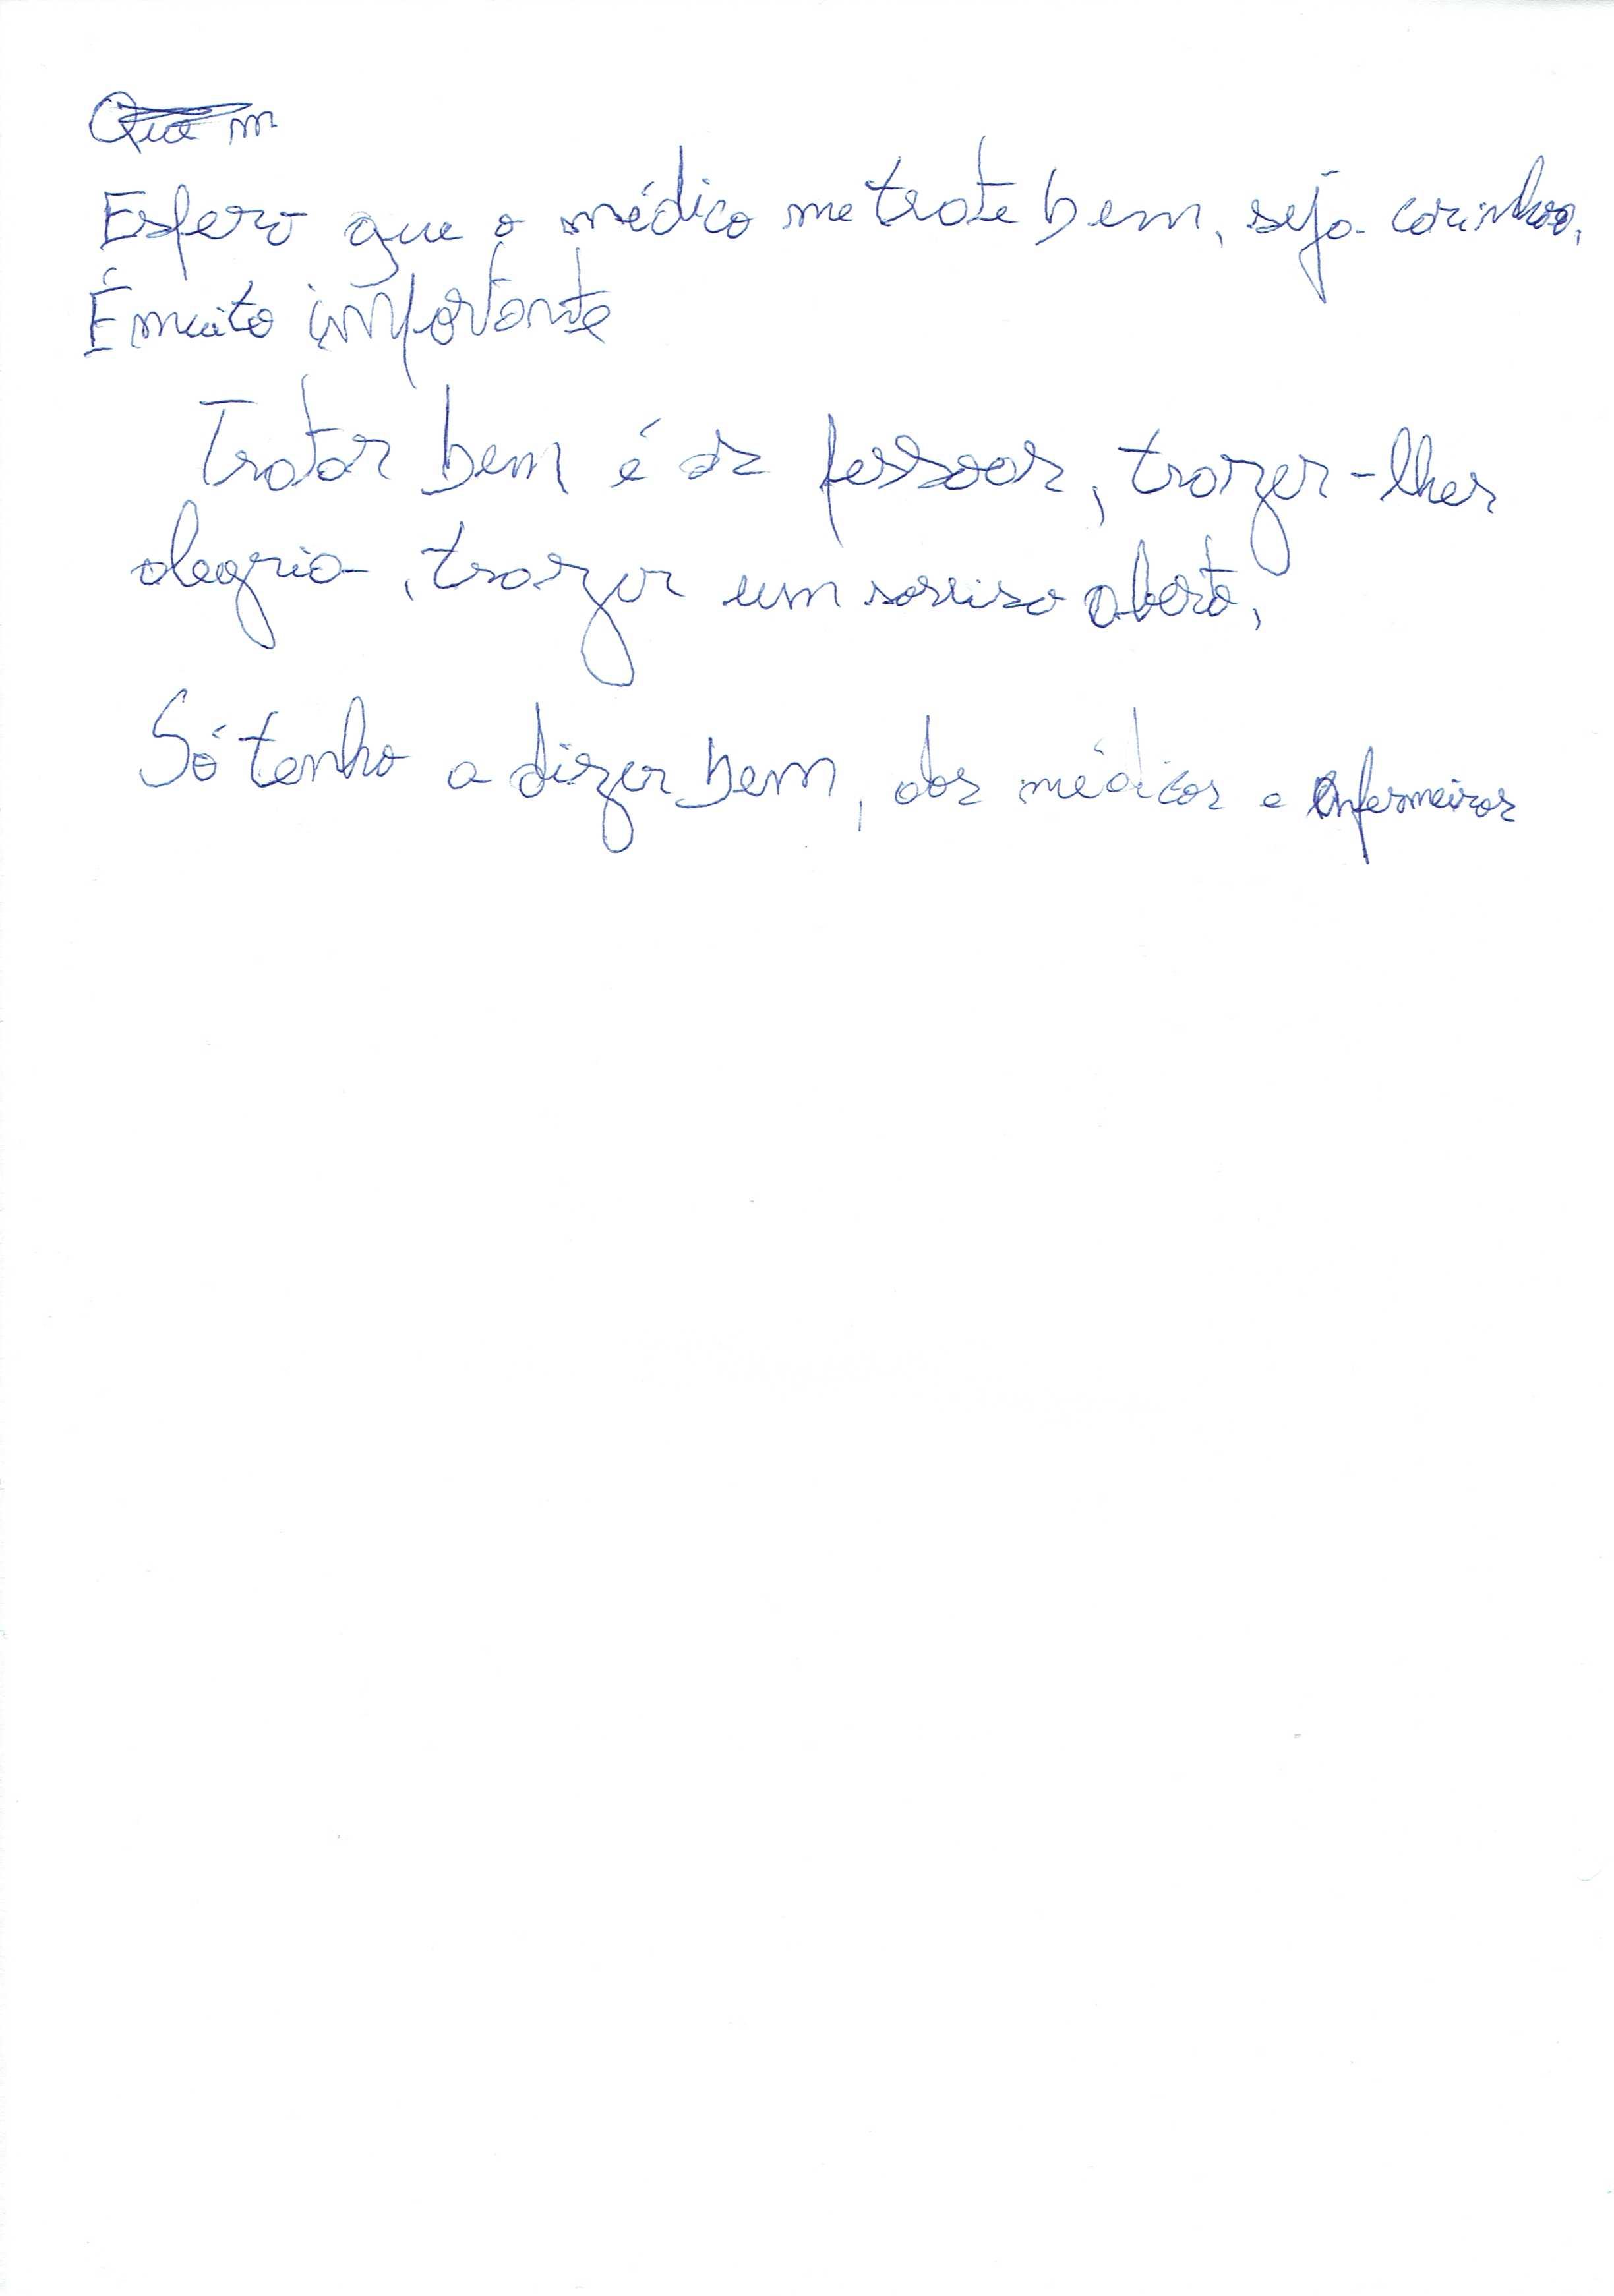 Que m
Espero que o médico me trate bem, seja carinhoso.
É muito importante
Tratar bem é as pessoas, trazer-lhes
alegria, trazer um sorriso aberto,
Só tenho a dizer bem, dos médicos e enfermeiros